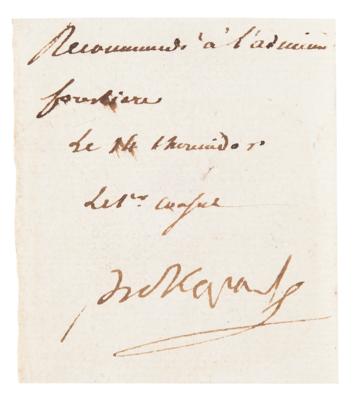 Recommandé à l'admini
forestiere
Le 14 thermidor
Le 1er Consul
Bonaparte